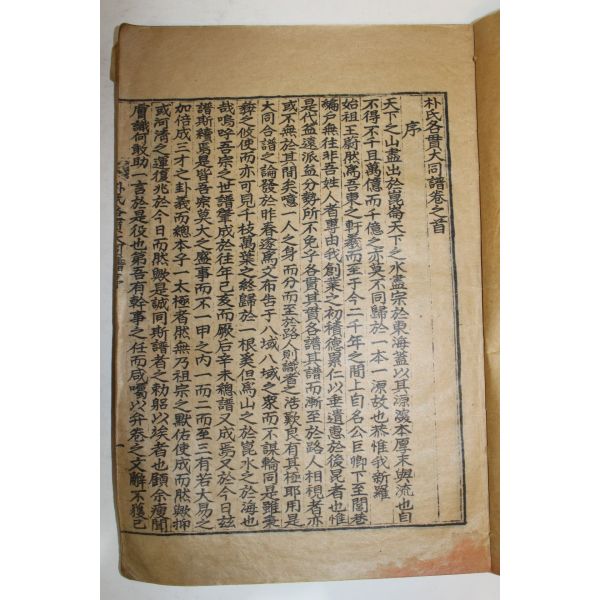 朴氏各貫大同譜卷之首
序
天下之山盡出於崑崙天下之水盡宗於東海蓋以其源深本厚末與流也自
不得不千且萬億而千億之亦莫不同歸於一本一源故也恭惟我新羅
始祖王蔚然爲吾東之軒羲而至于今二千年之間上自名公巨卿下至閭巷
編戶無往非吾姓人者粤由我創業之初積德累仁以垂遺惠於後昆者也惟
是代益遠派益分勢所不免乎各貫其貫各譜其譜而漸至於路人相視者亦
或不無於其間矣噫一人之身而分而至於路人則識者之浩歎良有其極耶用是
大同合譜之論發於昨春遂寓文布告于八域八域之衆而不謀輪同是雖秉
彝之攸使而亦可見千枝萬葉之終歸於一根矣但爲山之於崑水之於海也
哉嗚呼吾宗之世譜肇成於往年己亥而厥后辛未總譜又成焉又於今日玆
譜斯續焉是皆吾宗莫大之盛事而不一甲之内一而二而至三有若大易之
加倍成三才之卦義而總本乎一太極者然無乃祖宗之默佑使成而然歟抑
或河清而之運復兆於今日而然歟是誠同斯譜者之勅躬以俟者也顧余瘦聞
膚識何敢助一言於是役也第吾有幹事之任而咸囑以弁卷之文辭不獲已
朴氏各貫大同譜序
一